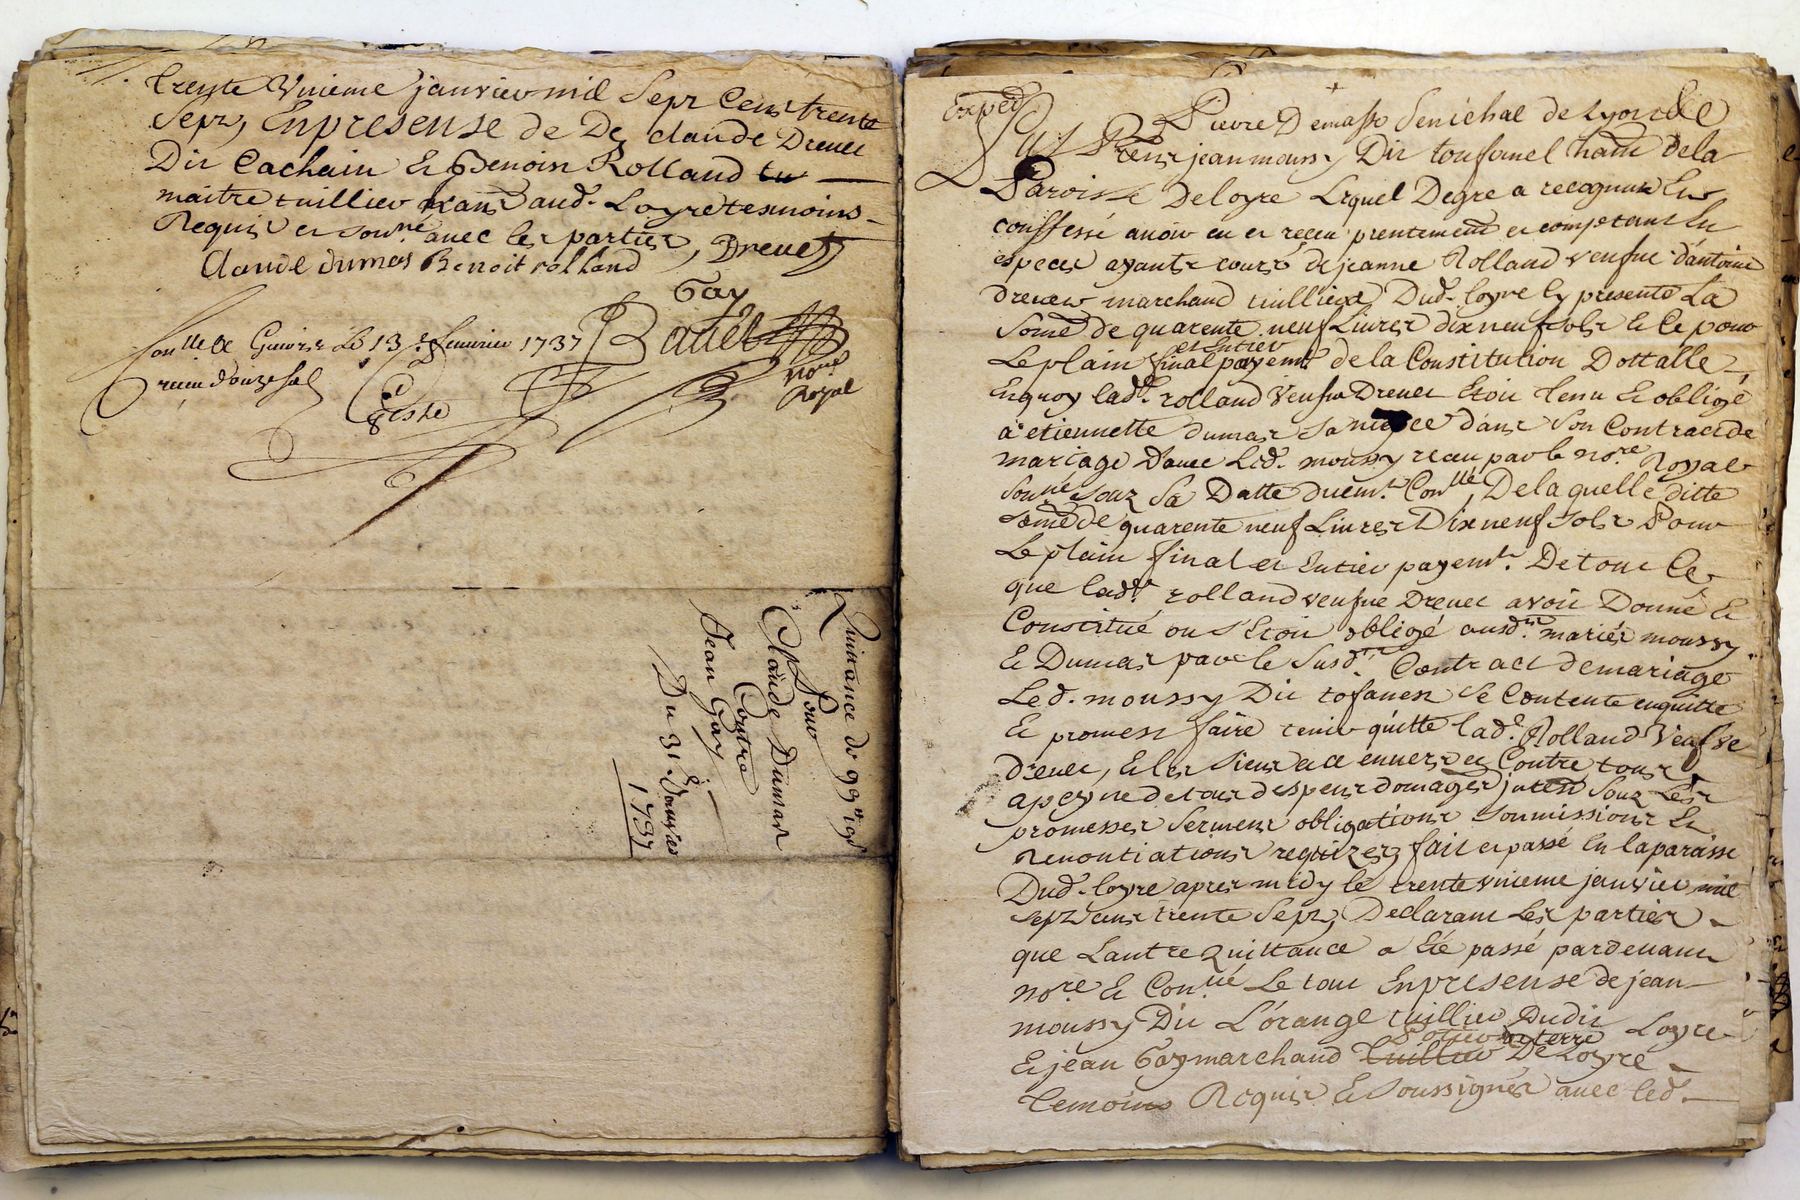 trente Unieme janvier mil Sept Cens trente
Sept, En presense de De Claude Drevet
Dit Cachain et Benoist Rolland
maitre tuillier dud. Loyre temoins
Requis et sou.né avec les parties, Drevet
Claude dumas Benoit rolland
Gay
Con.llé a Givors Le 13e fevrier 1737
recu douze sols
Badet
no.re
Royal
Quittance de 99ll 19s
Pour
Claude Dumas
Contre
Jean Gay
Du 31e Janvier
1737
Exped
Pierre Demasso Senichal de Lyon
jean moussy Dit toufanel hant de la
Paroisse De loyre Lequel Degre a recognu Et
confessé avoir eu et receu prentement et comptant En
especes ayants cours de jeanne Rolland veufve d'antoine
drevet marchand tuillier Dud. loyre Cy presente La
Some de quarente neuf Livres dix neuf sols Et Ce pour
et Entier
Le plain final payemt. de la Constitution Dottalle
En quoy lad. rolland Veufve Drevet Etoit Tenu Et obligé
à etiennette dumas Sa niepce dans Son Contract de
mariage D'avec Led. moussy receu par le no.re Royal
Sou.né souz Sa Datte duemt. Con.llé, De laquelle ditte
some de quarente neuf Livres Dix neuf Sols Pour
Le plain final et Entier payemt. De tout Ce
que lad. rolland veufve Drevet avoit Donné Et
Constitué ou S'Etoit obligé ausd. mariés moussy
Et Dumas par le Susd. Contract de mariage
Led. moussy Dit tofanel Se Contente en quitte
Et promest faire tenir quitte lad. Rolland Veufve
drevet, Et les Siens envers et Contre tous
a peyne de tous despens domages Souz Les
promesses Serments obligations Soumissions Et
Renontiations requizes fait et passé En la paroisse
Dud. loyre apres midy le trente unieme janvier mil
sept cens trente Sept, Declarant Les parties
que Lautre Quittance a Eté passé pardevant
no.re Et Con.llé Le tout En presense de jean
moussy Dit L'orange tuillier Dudit Loyre
Potier de terre
Et jean Gay marchand tuillier De Loyre
temoins Requis Et soussignés avec led.